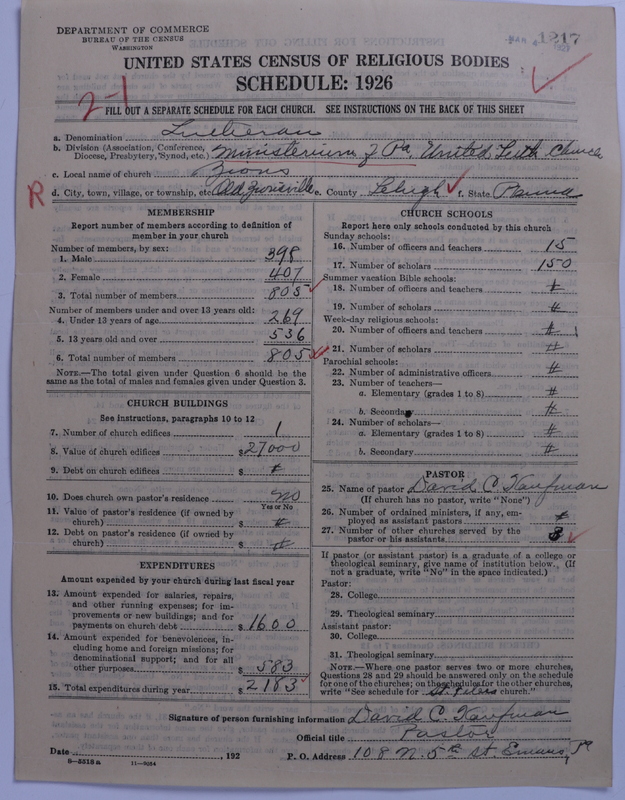 DEPARTMENT OF COMMERCE
BUREAU OF THE CENSUS
WASHINGTON
1217
UNITED STATES CENSUS OF RELIGIOUS BODIES
SCHEDULE: 1926
2-1
FILL OUT A SEPARATE SCHEDULE FOR EACH CHURCH. SEE INSTRUCTIONS ON THE BACK OF THIS SHEET
a. Denomination Lutheran
b. Division (Association, Conference, Diocese, Presbytery, Synod, etc.) Ministerium of Pa. United Luth Church
c. Local name of church Zions
R
d. City, town, village, or township, etc. Old Zionsville e. County Lehigh f. State Penna
MEMBERSHIP
Report number of members according to definition of
member in your church
Number of members, by sex:
1. Male 398
2. Female 407
3. Total number of members 805
Number of members under and over 13 years old:
4. Under 13 years of age 269
5. 13 years old and over 536
6. Total number of members 805
NOTE.—The total given under Question 6 should be the
same as the total of males and females given under Question 3.
CHURCH BUILDINGS
See instructions, paragraphs 10 to 12
7. Number of church edifices 1
8. Value of church edifices $ 27000
9. Debt on church edifices $ #
10. Does church own pastor's residence no
Yes or No
11. Value of pastor's residence (if owned by
church) $ #
12. Debt on pastor's residence (if owned by
church) $ #
EXPENDITURES
Amount expended by your church during last fiscal year
13. Amount expended for salaries, repairs,
and other running expenses; for im-
provements or new buildings; and for
payments on church debt $ 1600
14. Amount expended for benevolences, in-
cluding home and foreign missions; for
denominational support; and for all
other purposes $ 583
15. Total expenditures during year $ 2183
CHURCH SCHOOLS
Report here only schools conducted by this church
Sunday schools:
16. Number of officers and teachers 15
17. Number of scholars 150
Summer vacation Bible schools:
18. Number of officers and teachers #
19. Number of scholars #
Week-day religious schools:
20. Number of officers and teachers #
21. Number of scholars #
Parochial schools:
22. Number of administrative officers #
23. Number of teachers—
a. Elementary (grades 1 to 8) #
b. Secondary #
24. Number of scholars—
a. Elementary (grades 1 to 8) #
b. Secondary #
PASTOR
25. Name of pastor David C. Kaufman
(If church has no pastor, write "None")
26. Number of ordained ministers, if any, em-
ployed as assistant pastors #
27. Number of other churches served by the
pastor or his assistants 3
If pastor (or assistant pastor) is a graduate of a college or
theological seminary, give name of institution below. (If
not a graduate, write "No" in the space indicated.)
Pastor:
28. College
29. Theological seminary
Assistant pastor:
30. College
31. Theological seminary
NOTE.—Where one pastor serves two or more churches,
Questions 28 and 29 should be answered only on the schedule
for one of the churches; on the schedules for the other churches,
write "See schedule for St. Peters church."
Signature of person furnishing information David C. Kaufman
Official title Pastor
Date , 192
P. O. Address 108 N. 5th St. Emaus, Pa
8—5518 a 11—9054